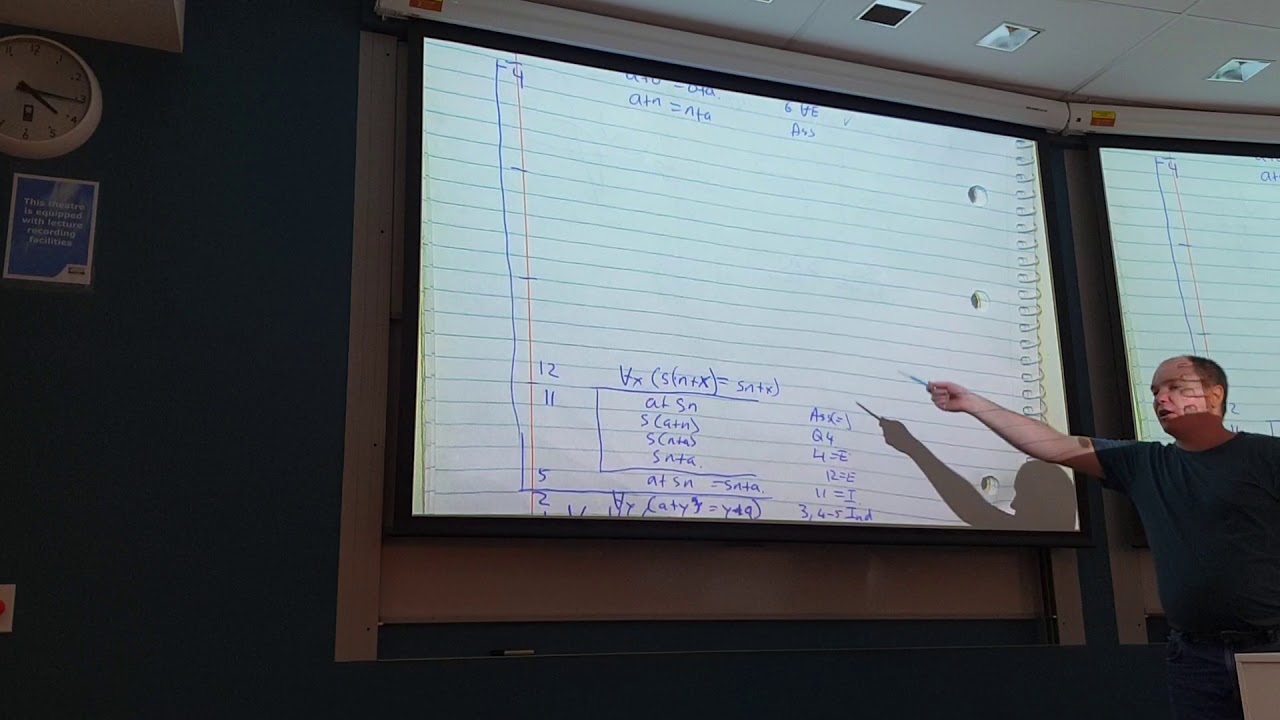 11 12 1
2
3
4
5
6
8
This theatre
is equipped
with lecture
recording
facilities
4
a+0 = 0+a. 6 ∀E
a+n = n+a Ass
12 ∀x (s(n+x) = sn+x)
11 a+sn Ass(=)
s(a+n) Q4
s(n+a) 4=E
sn+a. 12=E
5 a+sn = sn+a. 11 = I
2 ∀y (a+y = y+a) 3, 4-5 Ind
4
a+
2